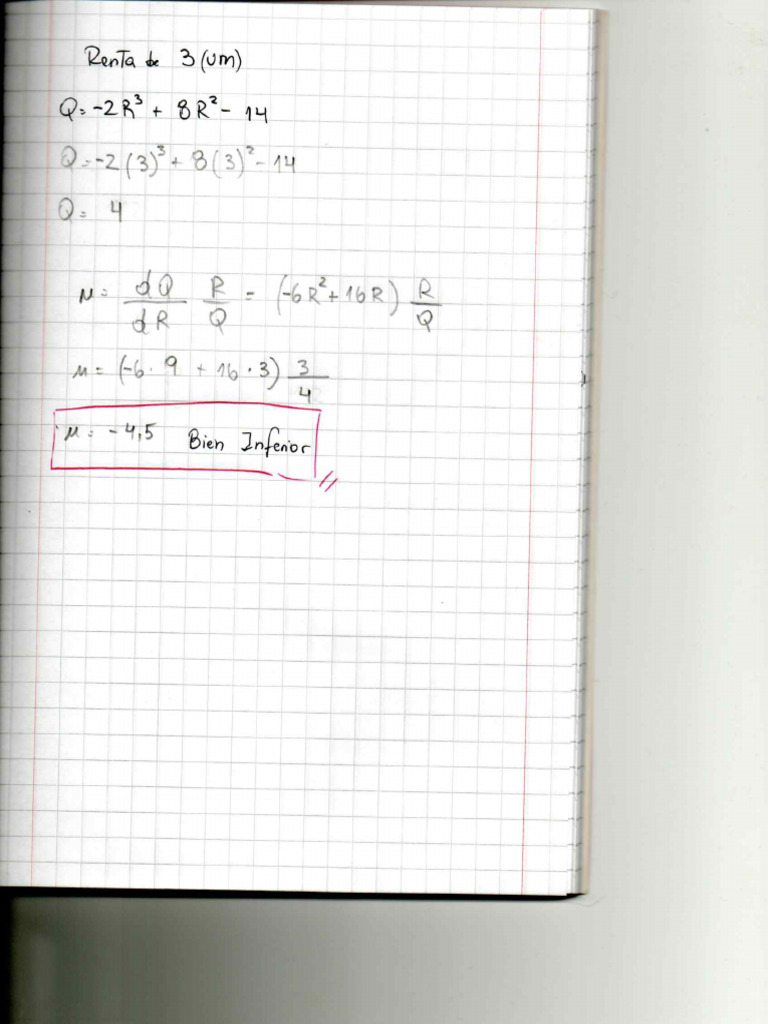 Renta de 3 (um)
Q = -2R³ + 8R² - 14
Q = -2(3)³ + 8(3)² - 14
Q = 4
μ = dQ/dR R/Q = (-6R² + 16R) R/Q
μ = (-6 · 9 + 16 · 3) 3/4
μ = -4,5 Bien Inferior